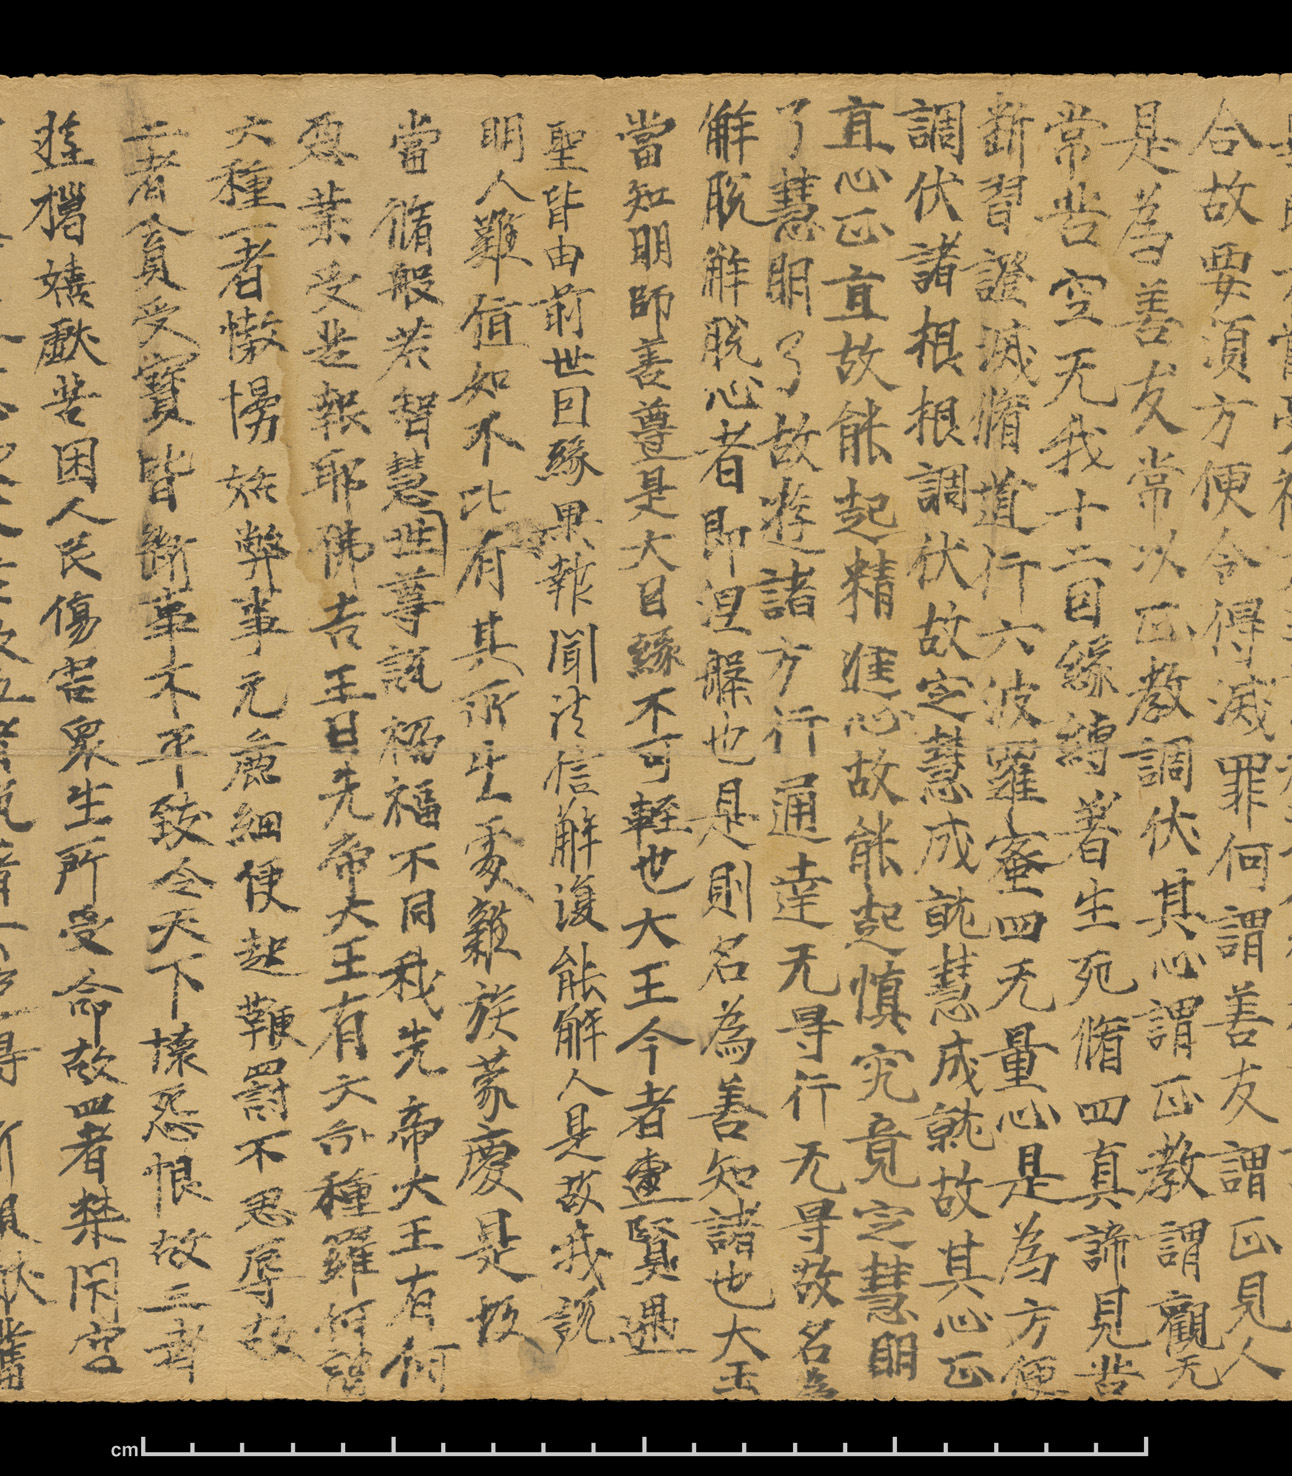 合故要須方便令得滅罪何謂善友謂正見人
是為善友常以正教調伏其心謂正教謂觀无
常苦空无我十二因緣縛著生死脩四真諦見苦
斷習證滅脩道行六波羅蜜四无量心是為方便
調伏諸根根調伏故定慧成就慧成就故其心正
直心正直故能起精進心故能起慎究竟定慧明
了慧明了故遊諸方行通達无㝵行无㝵故名為
解脫解脫心者即涅槃也是則名為善知諸也大王
當知明師善尊是大因緣不可輕也大王今者遭賢遇
聖皆由前世因緣果報聞法信解復能解人是故我說
明人難值如不比有其所生處雜族蒙慶是故
當脩般若智慧世尊說禍福不同我先帝大王有何
惡業受是報耶佛告王曰先帝大王有六種羅何謂
六種一者憿慢姤弊事无麁細便起鞭罰不忍辱故
二者貪受寶皆斷事不平致令天下懷怨恨故三者
遊獵嬉戲苦困人民傷害眾生所受命故四者禁閇宮